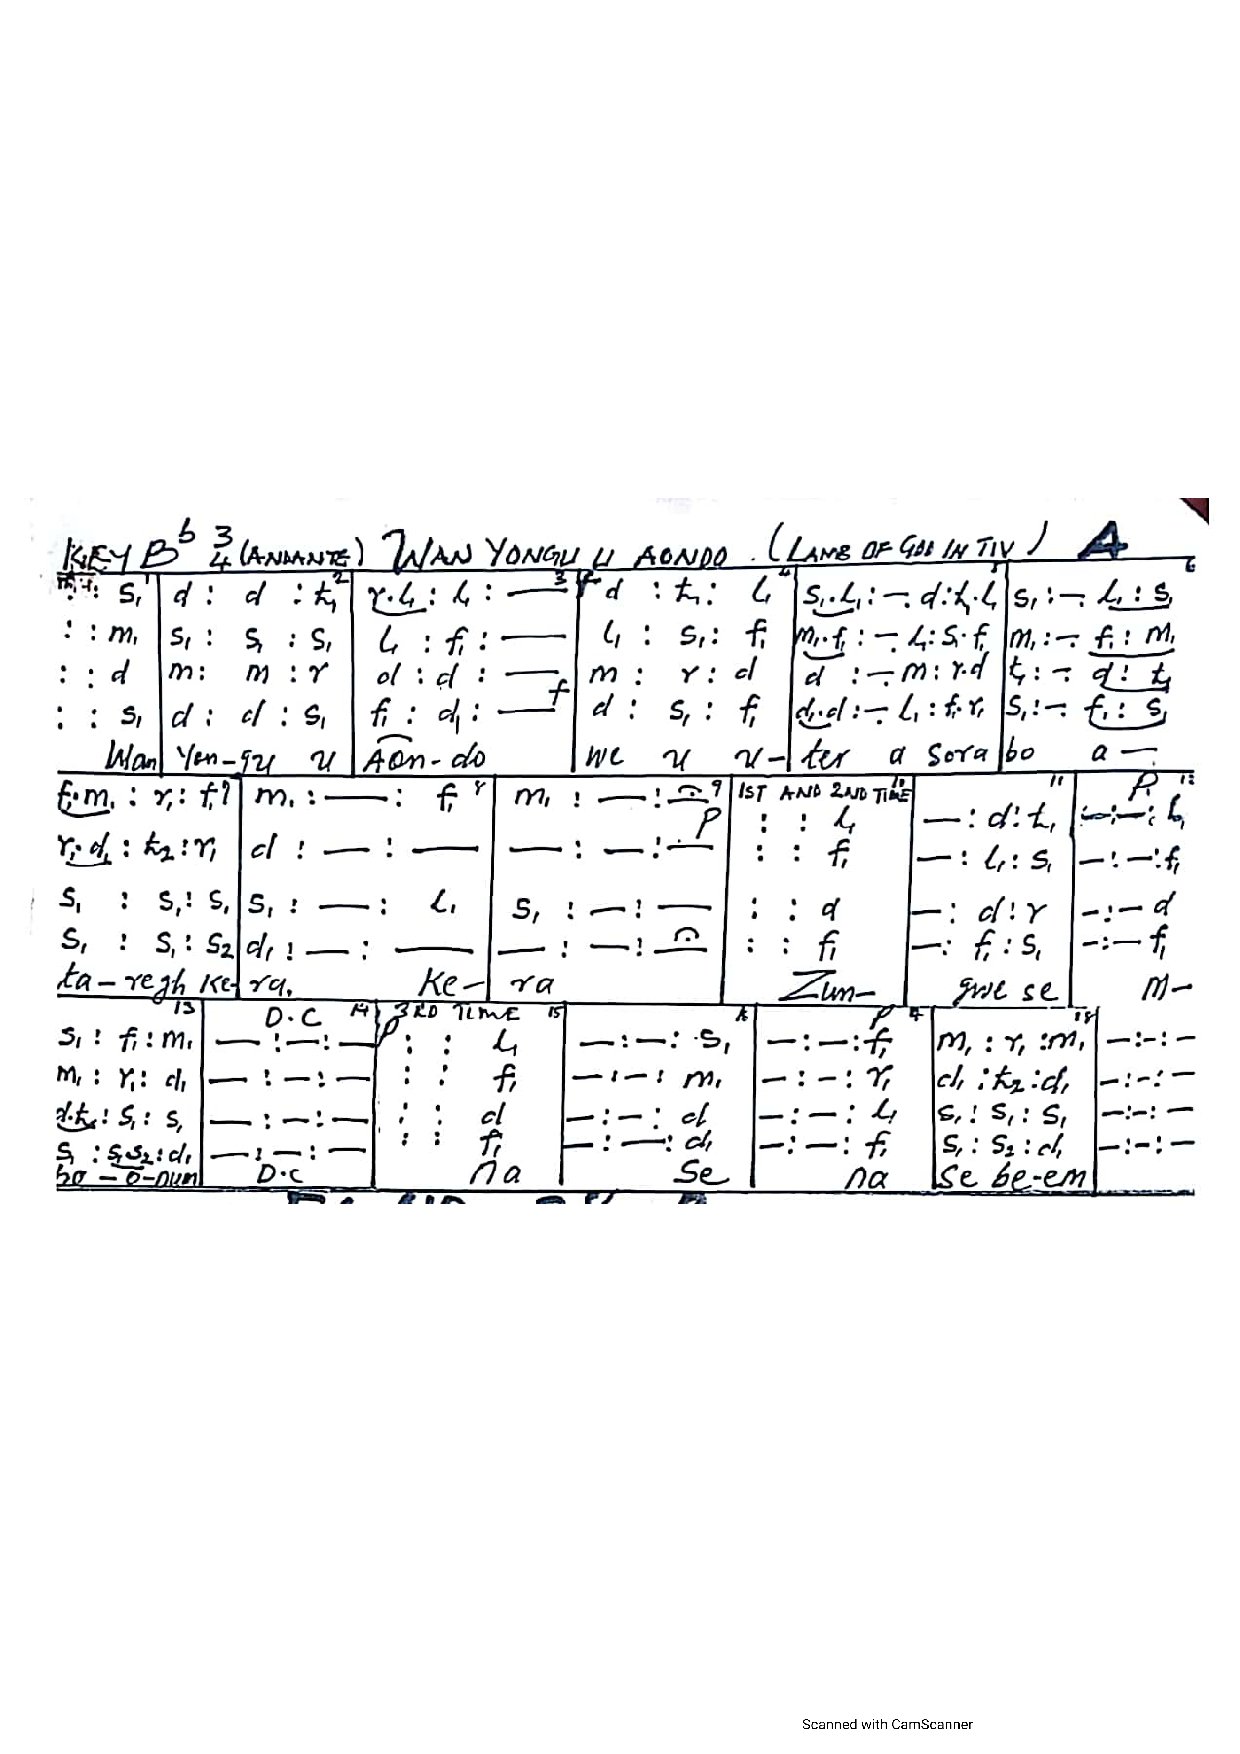 KEY Bb 3/4 (ANDANTE) WAN YONGU U AONDO. (LAMB OF GOD IN TIV) A
1 2 3 4 5 6
: : s₁ | d : d : t₁ | r.l₁ : l₁ : — | f d : t₁ : l₁ | s₁.l₁ : – d : t₁.l₁ | s₁ : – l₁ : s₁
: : m₁ | s₁ : s₁ : s₁ | l₁ : f₁ : — | l₁ : s₁ : f₁ | m₁.f₁ : – l₁ : s₁.f₁ | m₁ : – f₁ : m₁
: : d | m : m : r | d : d : — | m : r : d | d : – m : r.d | t₁ : – d : t₁
: : s₁ | d : d : s₁ | f₁ : d₁ : — f | d : s₁ : f₁ | d₁.d : – l₁ : f₁.r₁ | s₁ : – f₁ : s₁
Wan | Yon-gu u | Aon-do | we u u- | ter a Sora | bo a —
7 8 9 1ST AND 2ND TIME 10 11 P 12
f₁.m₁ : r₁ : f₁ | m₁ : — : f₁ | m₁ : — : — | : : l₁ | — : d : t₁ | — : — : l₁
r₁.d₁ : t₂ : r₁ | d : — : — | — : — : — P | : : f₁ | — : l₁ : s₁ | — : — : f₁
s₁ : s₁ : s₁ | s₁ : — : l₁ | s₁ : — : — | : : d | — : d : r | — : — d
s₁ : s₁ : s₂ | d₁ : — : — | — : — : — | : : f₁ | — : f₁ : s₁ | — : — f₁
ta-regh Ke- | ra. Ke- | ra | Zum- | gwe se | M-
13 D.C 14 P 3RD TIME 15 P 18
s₁ : f₁ : m₁ | — : — : — | : : l₁ | — : — : s₁ | — : — : f₁ | m₁ : r₁ : m₁ | — : — : —
m₁ : r₁ : d₁ | — : — : — | : : f₁ | — : — : m₁ | — : — : r₁ | d₁ : t₂ : d₁ | — : — : —
d.t₁ : s₁ : s₁ | — : — : — | : : d | — : — : d | — : — : l₁ | s₁ : s₁ : s₁ | — : — : —
s₁ : s₁.s₂ : d₁ | — : — : — | : : f₁ | — : — : d₁ | — : — : f₁ | s₁ : s₂ : d₁ | — : — : —
bo-o-num | D.C | na | Se | na | se be-em
Scanned with CamScanner